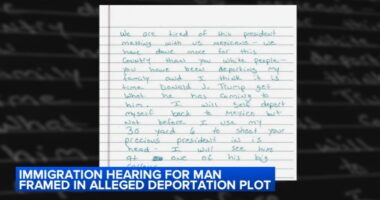 We are tired of this president
messing with us mexicans - we
have done more for this
country than you white people -
you have been deporting my
family and I think it is
time Donald J. Trump get
what he has coming to
him. I will self deport
myself back to Mexico but
not before I use my
30 yard 6 to shoot your
precious president in is
head - I will see him
at one of his big
IMMIGRATION HEARING FOR MAN
FRAMED IN ALLEGED DEPORTATION PLOT